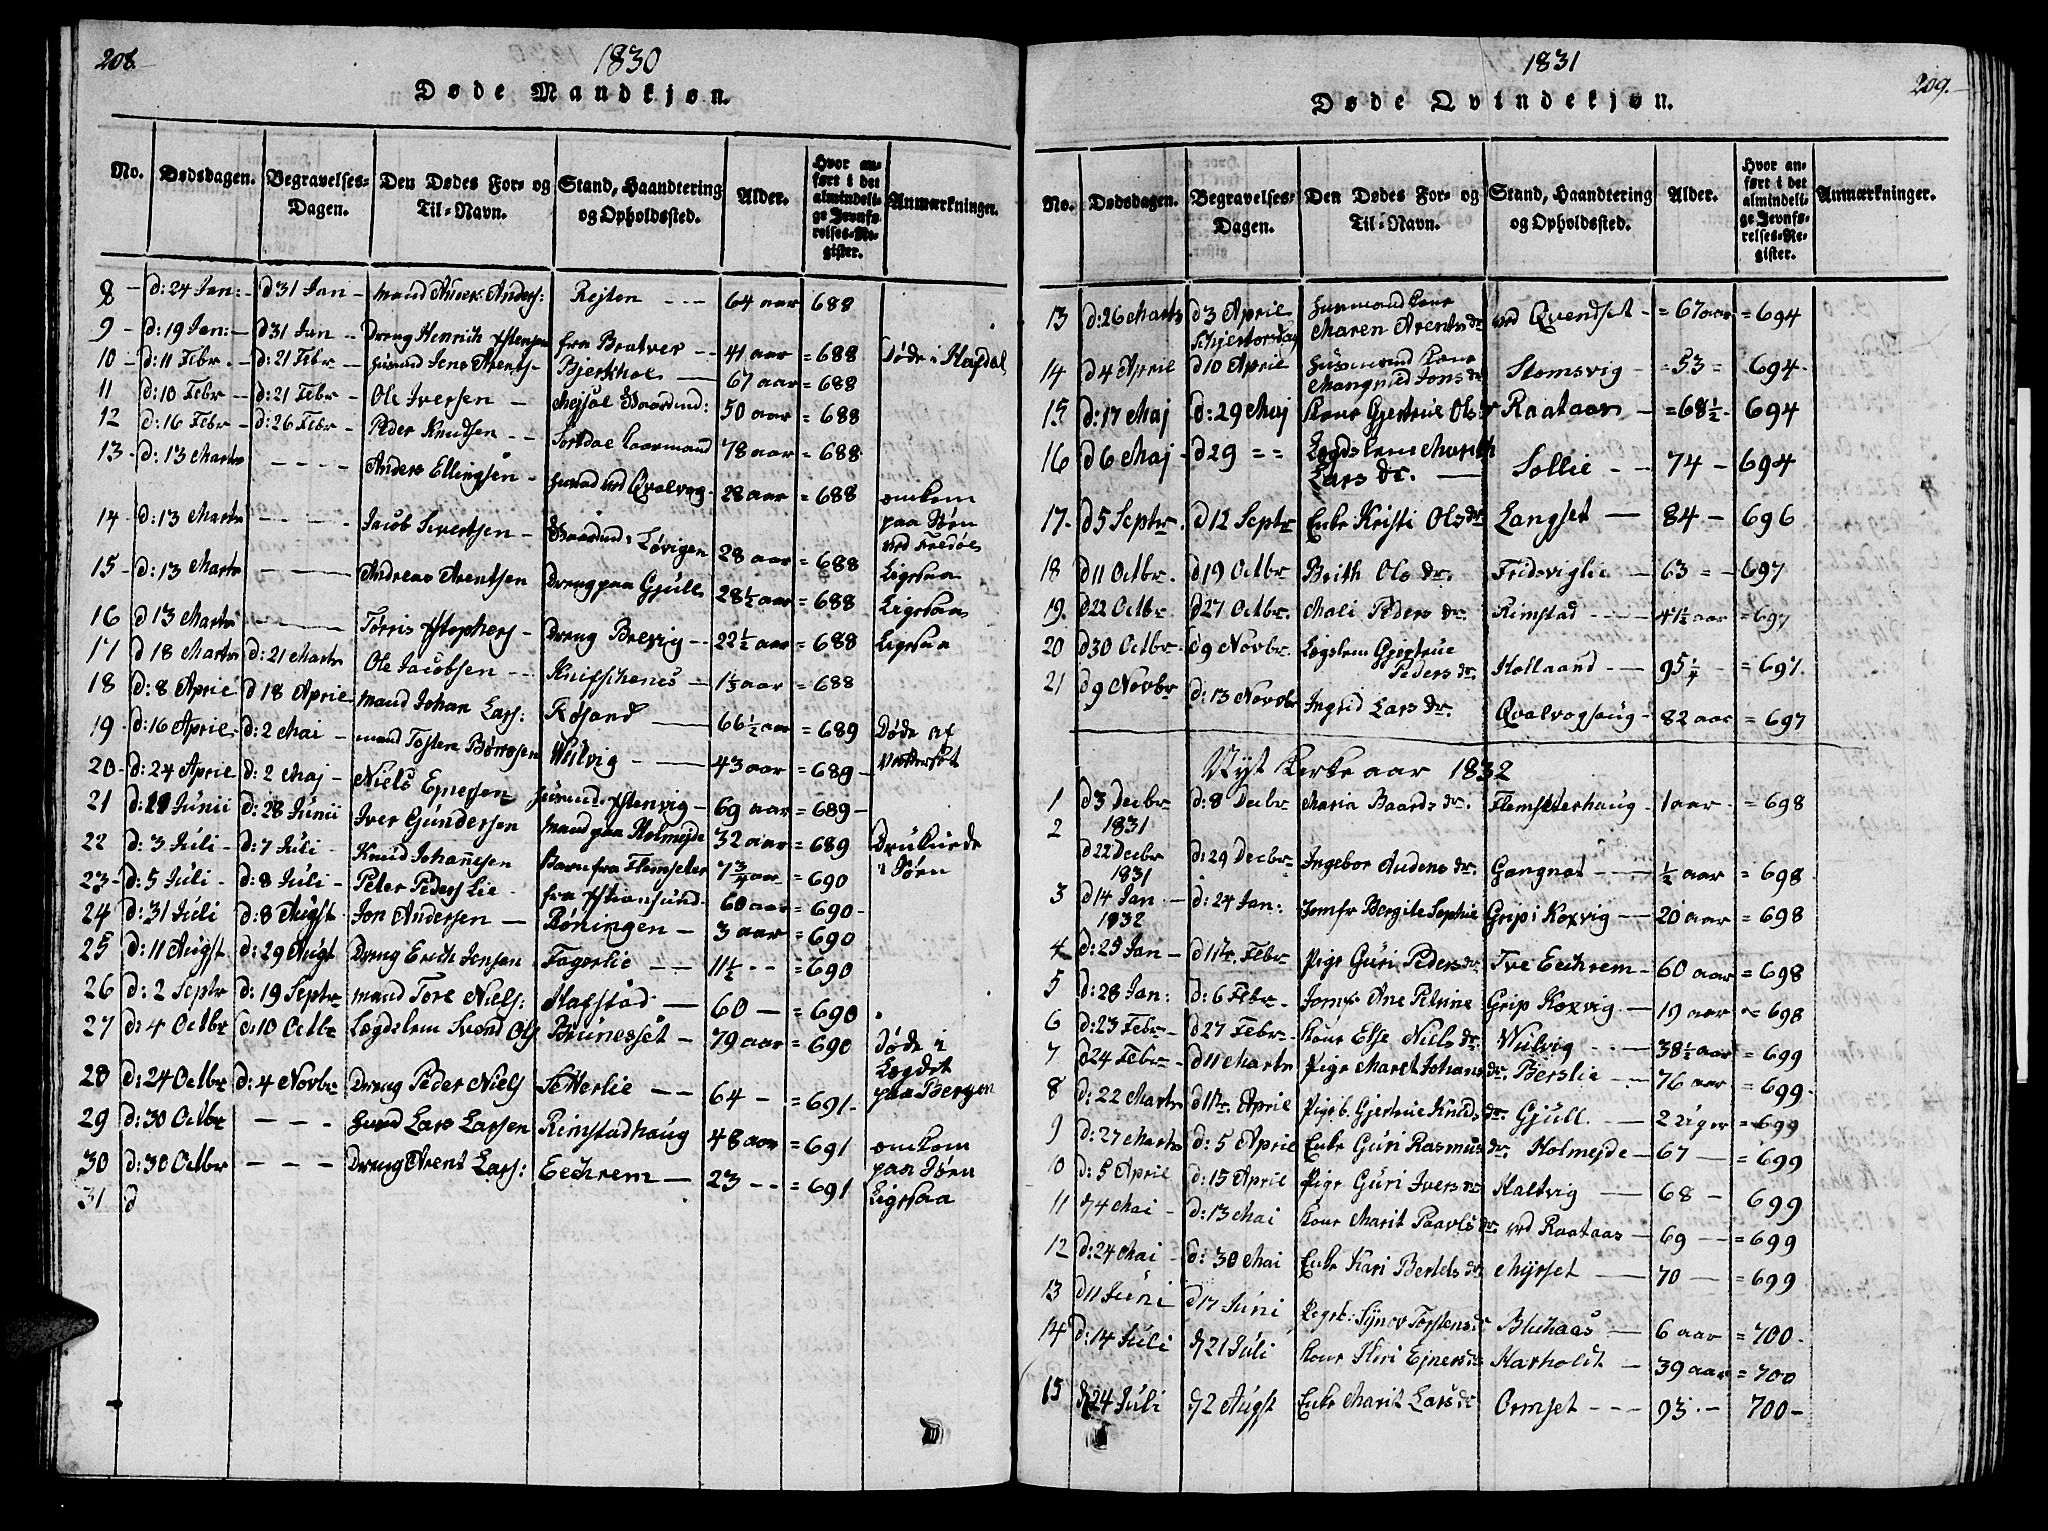 208.
1830
Døde Mandkjøn.
No. | Dødsdagen. | Begravelses-Dagen. | Den Dødes For- og Til-Navn. | Stand, Haandtering og Opholdssted. | Alder. | Hvor anført i det almindelige Jevnførelses-Register. | Anmærkninger.
8 - d: 24 Jan: - d 31 Jan - mand Anders Anders: Rejten - - - 64 aar 688
9 - d: 19 Jan: - d 31 Jan - - Dreng Henrich fra Bratvær - - 41 aar = 688 Døde i Hafdal
10 - d: 11 Febr - d: 21 Febr - Jens Arents - Bjerkhol - 67 aar = 688
11 d: 10 Febr - - d: 21 Febr - Ole Iversen - Mejsal 50 aar = 688
12 d: 16 Febr - d: 26 Febr - Peder Knudsen - - Sordal 78 aar = 688
13 - d: 13 Marts - - - - Anders Ellingsen - ved Qvalvog - 28 aar = 688 omkom
14 - d: 13 Marts - - - - Jacob Sivertsen - Løvigen 28 aar = 688 paa Søen ved Fredøe
15 - d: 13 Marts - - - Andreas Arentsen Dreng paa Gjull 28½ aar = 688 Ligesaa
16 d 13 Marts - - - - Tørris - Dreng Brevig - - 22½ aar = 688 Ligesaa
17 d 18 Marts d: 21 Marts Ole Jacobsen - - 1⅓ aar = 688 Ligesaa
18 d: 8 April d 18 April mand Johan Lars: Røsand - 66½ aar = 689 Døde af
19 - d: 16 April - d: 2 Mai - mand Tosten 43 aar = 689 - Vattersot
20 - d: 24 April d: 2 Maj - Niels Ejnersen 69 aar = 689 -
21 d: Junii d: 28 Junii Iver Gundersen mand paa Holmejde 32 aar = 689 Druknede
22 d: 3 Juli - d: 7 Juli - Knud Johannesen Barn fra Flemseter 7¾ aar = 690 i Søen
23 - d: 5 Juli - d: 8 Juli - Peter Peders Lie - 60 aar = 690 -
24 d: 31 Juli d: 8 Augst Jon Andersen - Røningen - 3 aar = 690
25 d: 11 Augst d: 29 Augt Dreng Erich Jensen Fagerlie - - 11½ - - = 690
26 d: 2 Septr d: 19 Septr mand Tore Niels: Hafstad - 60 - = 690
27 d: 4 Octbr d: 10 Octbr Lægdslem Svend Ols Brunesset - 79 aar = 690 Døde i Lægdet paa Bergen
28 d: 24 Octbr d: 4 Novbr Dreng Peder Niels Setterlie - - 64 - = 691 -
29 d: 30 Octbr - - - Lars Larsen Rimstadhaug 48 aar = 691 omkom
30 d: 30 Octbr - - - Dreng Arent Lars: Eechrem - 23 - - = 691 paa Søen
31 d Ligesaa
1831
209.
Døde Qvindekjøn.
No. | Dødsdagen. | Begravelses-Dagen. | Den Dødes For- og Til-Navn. | Stand, Haandtering og Opholdssted. | Alder. | Hvor anført i det almindelige Jevnførelses-Register. | Anmærkninger.
13 d: 26 Marts d 3 April Skjertorsdag Husmands Kone Maren Arents dr ved Qvendset - = 67 aar = 694
14 d 4 April d 10 April Husmands Kone Jons dr Stomsvig - = 53 = 694 -
15 d: 17 Maj d: 29 Maj Kone Gjertrue Ols dr Raataas - = 68½ - 694
16 d 6 Maj - d 29 = = Lægdslem Marith Lars dr. - Sollie - - 74 - 694
17 - d 5 Septr - d 12 Septr Enke Kristi Ols dr Langset - 84 - 696
18 d 11 Octbr. d 19 Octbr Brith Ols dr. Fredsviglie - 63 = - 697
19. d 22 Octbr. d 27 Octbr. Mali Peders dr. Rimstad - - - 4½ aar = 697
20 d 30 Octbr. d 9 Novbr. Lægslem Gjertrue Peders dr. Hollaand - - 95¼ - = 697
21 d 9 Novbr d: 13 Novbr Ingrid Lars dr. Qvalvoghaug - 82 aar = 697
Nyt Kerke aar 1832
1 d 3 Decbr 1831 d: 8 Decbr Maria Baards dr. Flemsterhaug - 1 aar - = 698
2 d 22 Decbr 1831 d: 29 Decbr Ingebor Audens dr. Gangnat - ½ aar = 698
3 d 14 Jan. 1832 d: 24 Jan: Jomfr Bergite Sophie Grip i Koxvig - 20 aar = 698
4 d: 25 Jan - d 11te. Febr Pige Guri Peders dr Tve Eechrem - 60 aar = 698
5 d: 28 Jan: d: 6 Febr - Jomfr Ane Petrine Grip Koxvig - 19 aar = 698
6 d: 23 Febr - d 27 Febr - Kone Else Niels dr. Wulvig - - - 38½ aar = 699
7 d 24 Febr - d 11 Marts Pige Maret Johans dr. Berslie - - 76 aar = 699 -
8 d: 22 Marts d 1te. April Pigeb. Gjertrue Knuds dr. Gjull - - 2 Uger = 699
9 d: 27 Marts d: 5 April Enke Guri Rasmus dr. Holmejde - 67 - = 699
0 d: 5 April d: 15 April Pige Guri Ivers dr Haltvig - - 68 - 699
11 d 4 Mai - d: 13 Mai Kone Marit Paavls dr. ved Raataas - 69 - - = 699
12 d: 24 Mai - d: 30 Mai Enke Kari Bertels dr Myrset - - 70 - = 699
13 d 11 Juni d 17 Juni Pegeb: Synev Torstens dr 6 aar = 700 -
14 d: 14 Juli d 21 Juli Kone Siri Ejners dr Harholdt - 39 aar = 700
15 d 24 Juli d 2 Augst Enke Marit Lars dr Ormset - - - 93 - - 700 -